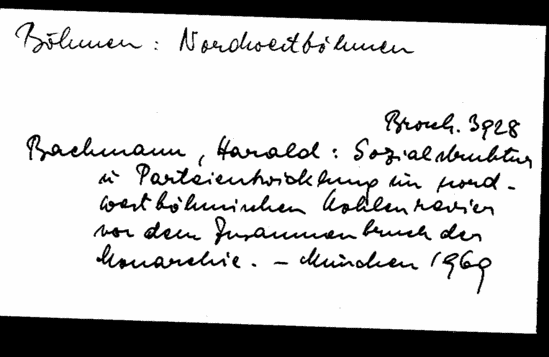 Böhmen: Nordwestböhmen
Brosch. 3928
Bachmann, Harald: Sozialstruktur
u Parteientwicklung im nord-
westböhmischen Kohlenrevier
vor dem Zusammenbruch der
Monarchie. – München 1969